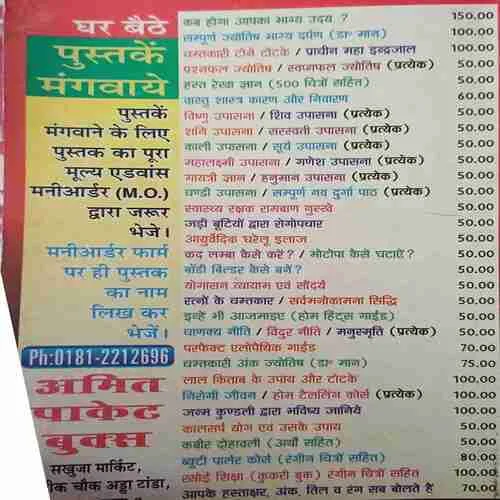 घर बैठे
पुस्तकें
मंगवाये
पुस्तकें
मंगवाने के लिए
पुस्तक का पूरा
मूल्य एडवांस
मनीआर्डर (M.O.)
द्वारा जरूर
भेजे।
मनीआर्डर फार्म
पर ही पुस्तक
का नाम
लिख कर
भेजें।
Ph:0181-2212696
अमित
पाकेट
बुक्स
सखुजा मार्किट,
क चौक अड्डा टांडा,
कब होगा आपका भाग्य उदय ? 150.00
सम्पूर्ण ज्योतिष भाग्य दर्पण (डा॰ मान) 100.00
चमत्कारी टोने टोटके / प्राचीन महा इन्द्रजाल 100.00
प्रश्नफल ज्योतिष / स्वप्नफल ज्योतिष (प्रत्येक) 50.00
हस्त रेखा ज्ञान (500 चित्रों सहित) 50.00
वास्तु शास्त्र कारण और निवारण 60.00
विष्णु उपासना / शिव उपासना (प्रत्येक) 50.00
शनि उपासना / सरस्वती उपासना (प्रत्येक) 50.00
काली उपासना / सूर्य उपासना (प्रत्येक) 50.00
महालक्ष्मी उपासना / गणेश उपासना (प्रत्येक) 50.00
गायत्री ज्ञान / हनुमान उपासना (प्रत्येक) 50.00
चण्डी उपासना / सम्पूर्ण नव दुर्गा पाठ (प्रत्येक) 50.00
स्वास्थ्य रक्षक रामबाण नुस्खे 50.00
जड़ी बूटियों द्वारा रोगोपचार 50.00
आयुर्वेदिक घरेलू इलाज 50.00
कद लम्बा कैसे करें? / मोटापा कैसे घटाएँ? 50.00
बॉडी बिल्डर कैसे बनें? 50.00
योगासन व्यायाम एवं सौंदर्य 50.00
रत्नों के चमत्कार / सर्वमनोकामना सिद्धि 50.00
इन्हे भी आजमाइए (होम हिंट्स गाईड) 50.00
चाणक्य नीति / विदुर नीति / मनुस्मृति (प्रत्येक) 50.00
परफेक्ट एलोपैथिक गाईड 70.00
चमत्कारी अंक ज्योतिष (डा॰ मान) 75.00
लाल किताब के उपाय और टोटके 100.00
निरोगी जीवन / होम टैलरिंग कोर्स (प्रत्येक) 100.00
जन्म कुण्डली द्वारा भविष्य जानिये 100.00
कालसर्प योग एवं उसके उपाय 50.00
कबीर दोहावली (अर्थों सहित) 50.00
ब्यूटी पार्लर कोर्स (रंगीन चित्रों सहित) 80.00
रसोई शिक्षा (कुकरी बुक) रंगीन चित्रों सहित 100.00
आपके हस्ताक्षर, अंक, तिल व रंग सब बोलते हैं 70.00